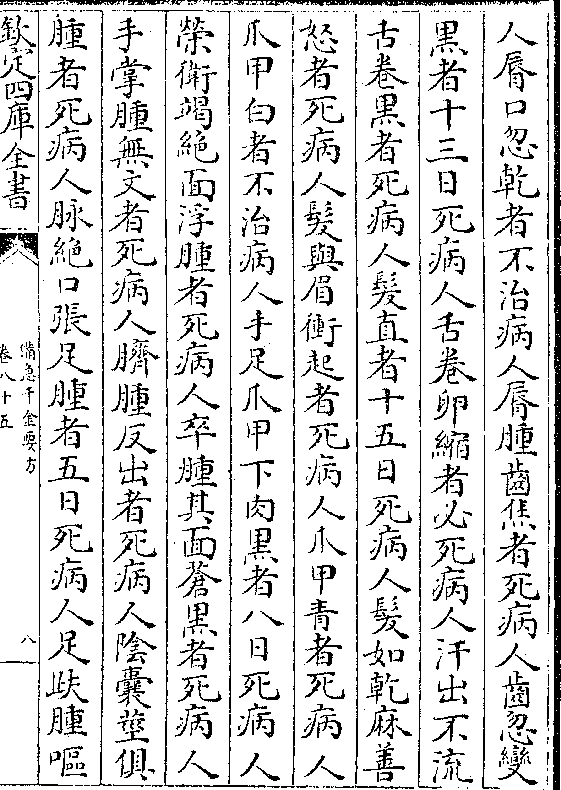 人脣口忽乾者不治病人脣腫齒焦者死病人齒忽變
黑者十三日死病人舌卷卵縮者必死病人汗出不流
舌卷黑者死病人髮直者十五日死病人髮如乾麻善
怒者死病人髮與眉衝起者死病人爪甲青者死病人
爪甲白者不治病人手足爪甲下肉黑者八日死病人
榮衛竭絶面浮腫者死病人卒腫其面蒼黒者死病人
手掌腫無文者死病人臍腫反出者死病人陰囊莖俱
腫者死病人脉絶口張足腫者五日死病人足趺腫嘔
欽定四庫全書
備急千金要方
卷八十五
八